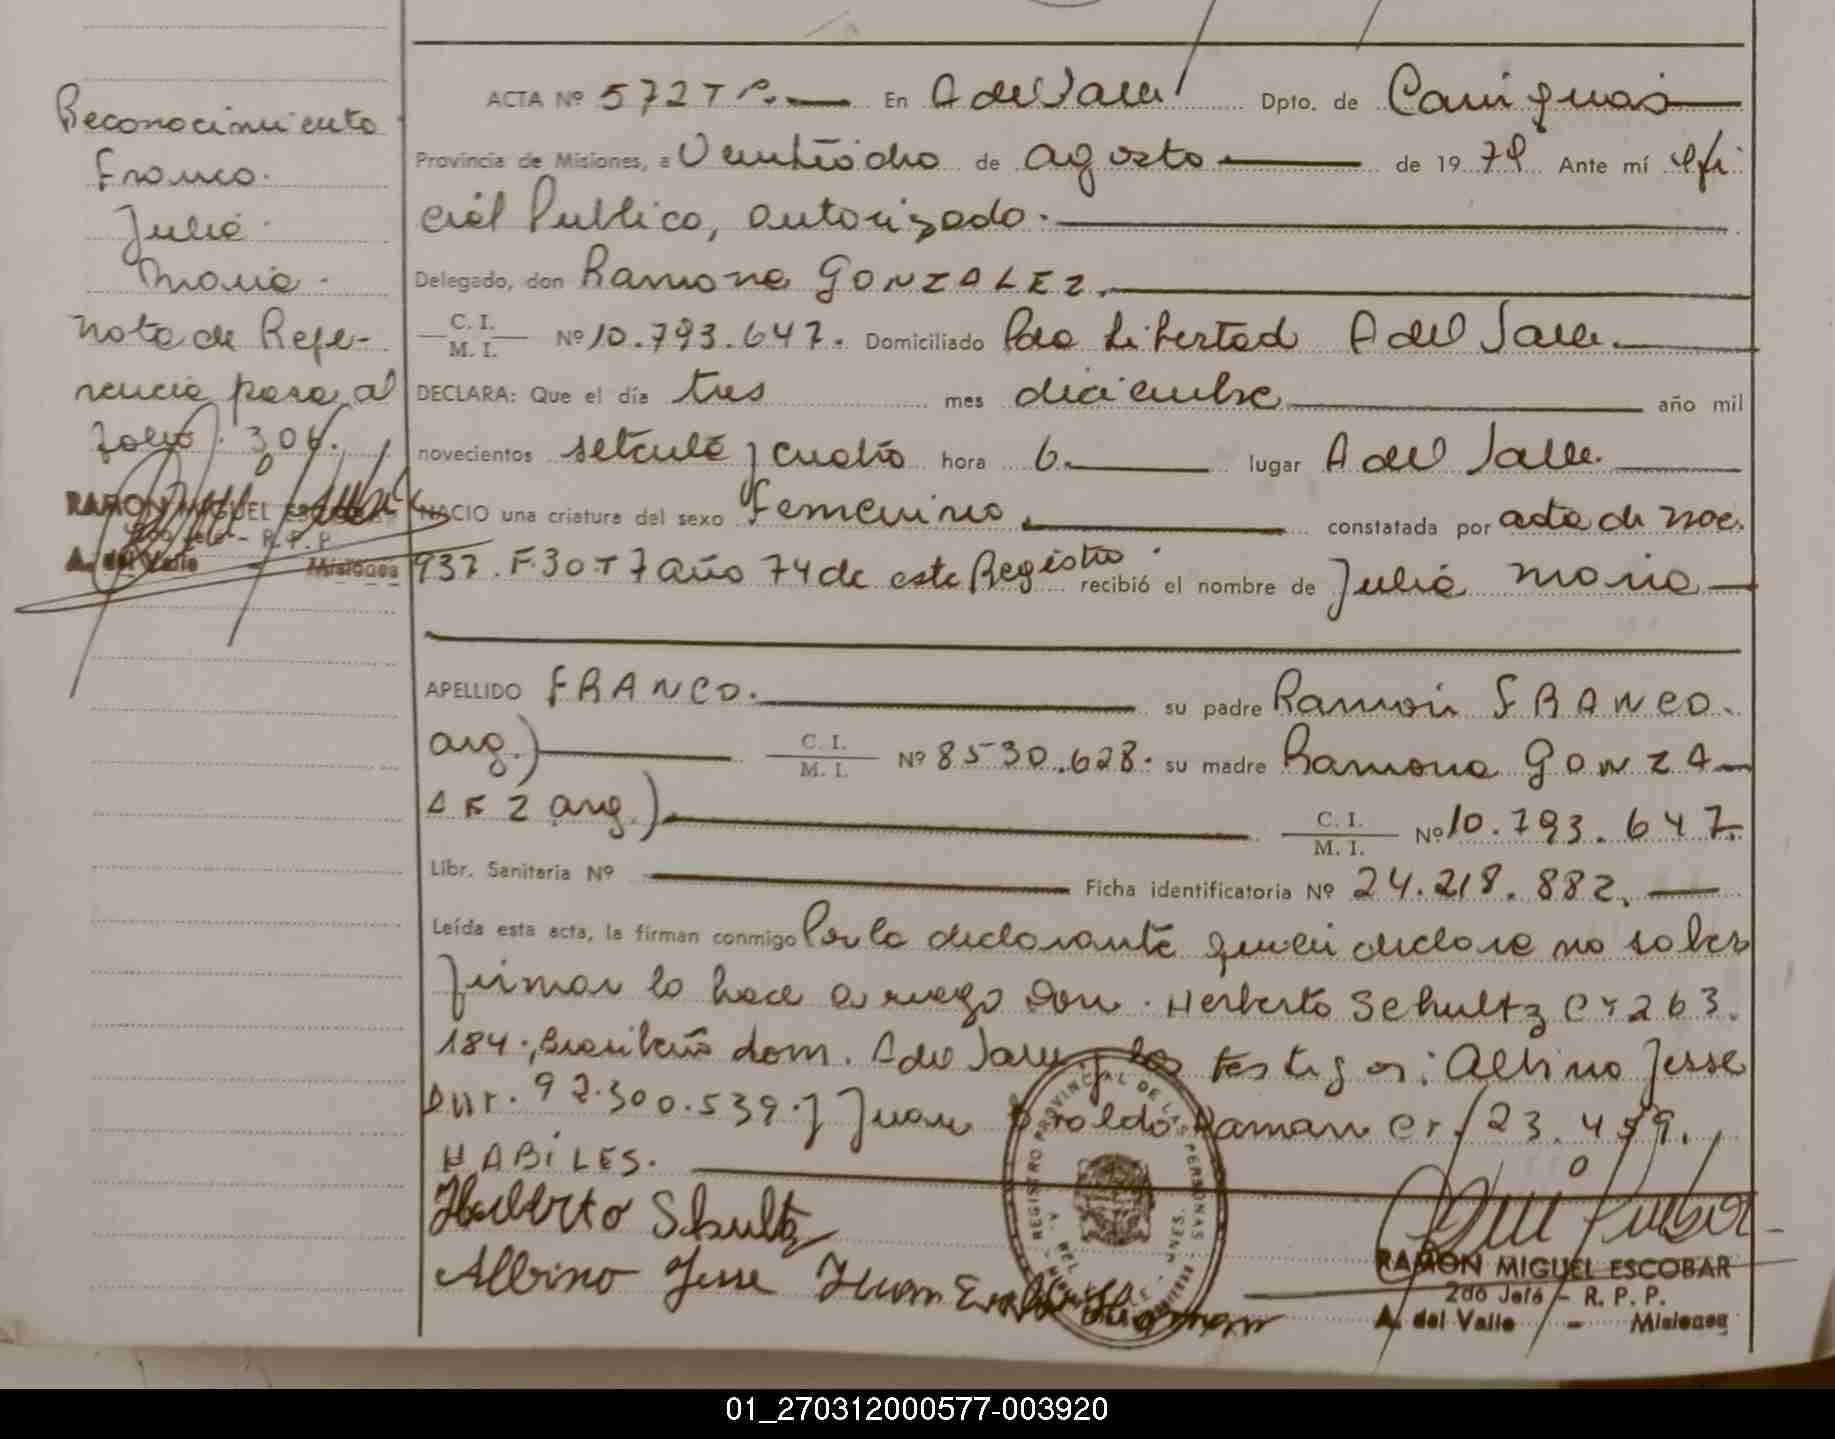 Reconocimiento
Franco.
Julia
Maria.
Nota de Refe-
rencia pasa al
folio. 306.
RAMON MIGUEL ESCOBAR
2do Jefe - R. P. P.
A. del Valle - Misiones
ACTA Nº 572 T P. En A del Valle Dpto. de Cainguas
Provincia de Misiones, a Veintiocho de agosto de 1979 Ante mí ofi
cial Publico, autorizado.
Delegado, don Ramona GONZALEZ.
C. I.
M. I. Nº 10.793.647. Domiciliado Pdo Libertad A del Valle.
DECLARA: Que el día tres mes diciembre año mil
novecientos setenta y cuatro hora 6. lugar A del Valle.
NACIO una criatura del sexo Femenino constatada por acta de nac.
937. F.30.T 7 año 74 de este Registro. recibió el nombre de Julia Maria
APELLIDO FRANCO. su padre Ramon FRANCO.
arg.) C. I.
M. I. Nº 8530.628. su madre Ramona GONZA
LEZ arg.) C. I.
M. I. Nº 10.793.647.
Libr. Sanitaria Nº Ficha identificatoria Nº 24.218.882.
Leída esta acta, la firman conmigo Por la declarante quien declara no saber
firmar lo hace a ruego Don. Herberto Schultz CI 263.
184., Brasileño dom. A del Valle y los testigos: Albino Jesse
DNI. 92.300.539. y Juan Eraldo Daman CI. 123.459.
HABILES.
Herberto Schultz
Albino Jesse Juan
REGISTRO PROVINCIAL DE LAS PERSONAS
RAMON MIGUEL ESCOBAR
2do Jefe - R. P. P.
A. del Valle - Misiones
01_270312000577-003920